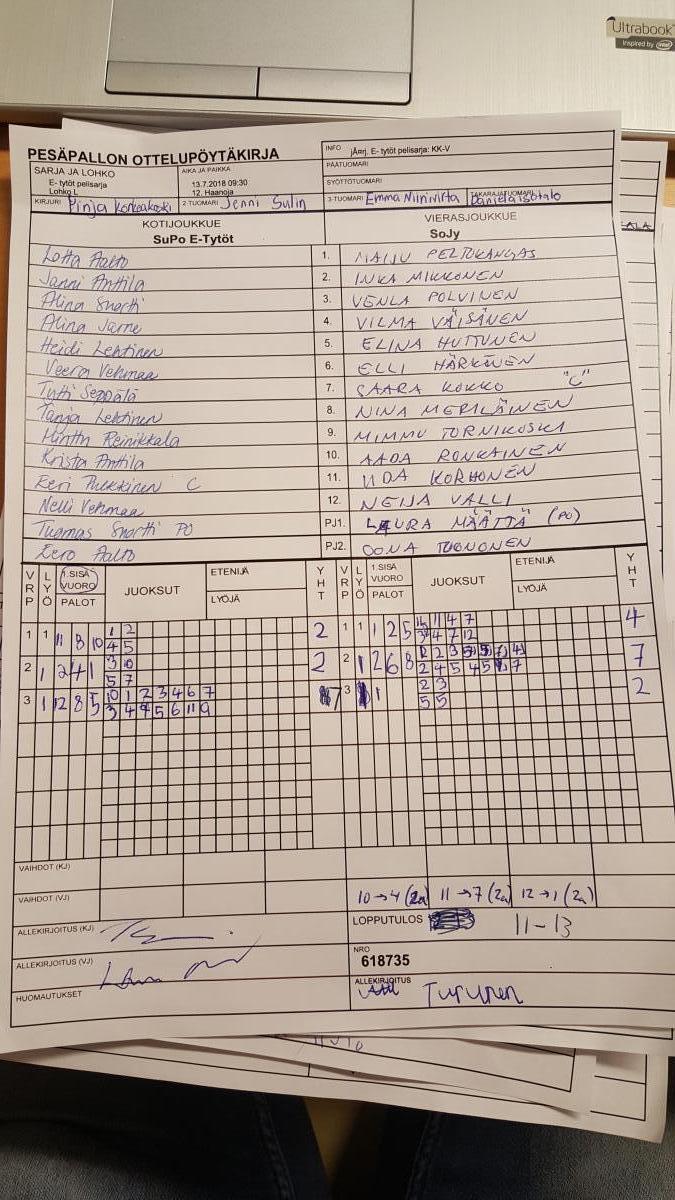 Ultrabook
inspired by intel
PESÄPALLON OTTELUPÖYTÄKIRJA
INFO jÄrrj. E- tytöt pelisarja: KK-V
SARJA JA LOHKO
E- tytöt pelisarja
Lohko L
AIKA JA PAIKKA
13.7.2018 09:30
12. Haanoja
PÄÄTUOMARI
SYÖTTÖTUOMARI
KIRJURI Pinja Korkeakoski 2-TUOMARI Jenni Sulin 3-TUOMARI Emma Niinivirta TAKARAJATUOMARI
KOTIJOUKKUE
SuPo E-Tytöt
VIERASJOUKKUE
SoJy
Lotta Aalto 1. MAIJU PELTOKANGAS
Janni Anttila 2. INKA MIKKONEN
Alina Snortti 3. VENLA POLVINEN
Alina Jarne 4. VILMA VÄISÄNEN
Heidi Lehtinen 5. ELINA HUTTUNEN
Veera Vehmaa 6. ELLI HÄRKÖNEN
Tytti Seppälä 7. SAARA KOKKO "C"
Tanja Lehtinen 8. NINA MERILÄINEN
Minttu Reinikkala 9. MIMMU TORNIKOSKI
Krista Anttila 10. AADA RONKAINEN
Keri Pulkkinen C 11. IIDA KORHONEN
Nelli Vehmaa 12. NEIJA VALLI
Tuomas Snortti PO PJ1. LAURA MÄÄTTÄ (PO)
Eero Aalto PJ2. OONA TUONONEN
VRP LYÖ 1.SISÄ VUORO PALOT JUOKSUT ETENIJÄ LYÖJÄ YHT VRP LYÖ 1.SISÄ VUORO PALOT JUOKSUT ETENIJÄ LYÖJÄ YHT
1 1 11 8 10 1 2 2 1 1 1 2 5 11 4 7 4
4 5 4 7 12
2 1 2 4 1 3 10 2 2 1 2 6 8 2 2 3 7
5 7 2 4 5 4 5 7
3 1 12 8 5 10 1 2 3 4 6 7 7 3 1 2 3 2
3 4 7 5 6 11 9 5 5
VAIHDOT (KJ)
VAIHDOT (VJ) 10→4 (2a) 11→7 (2a) 12→1 (2a)
ALLEKIRJOITUS (KJ)
LOPPUTULOS 11-13
ALLEKIRJOITUS (VJ)
NRO
618735
HUOMAUTUKSET
ALLEKIRJOITUS Turunen